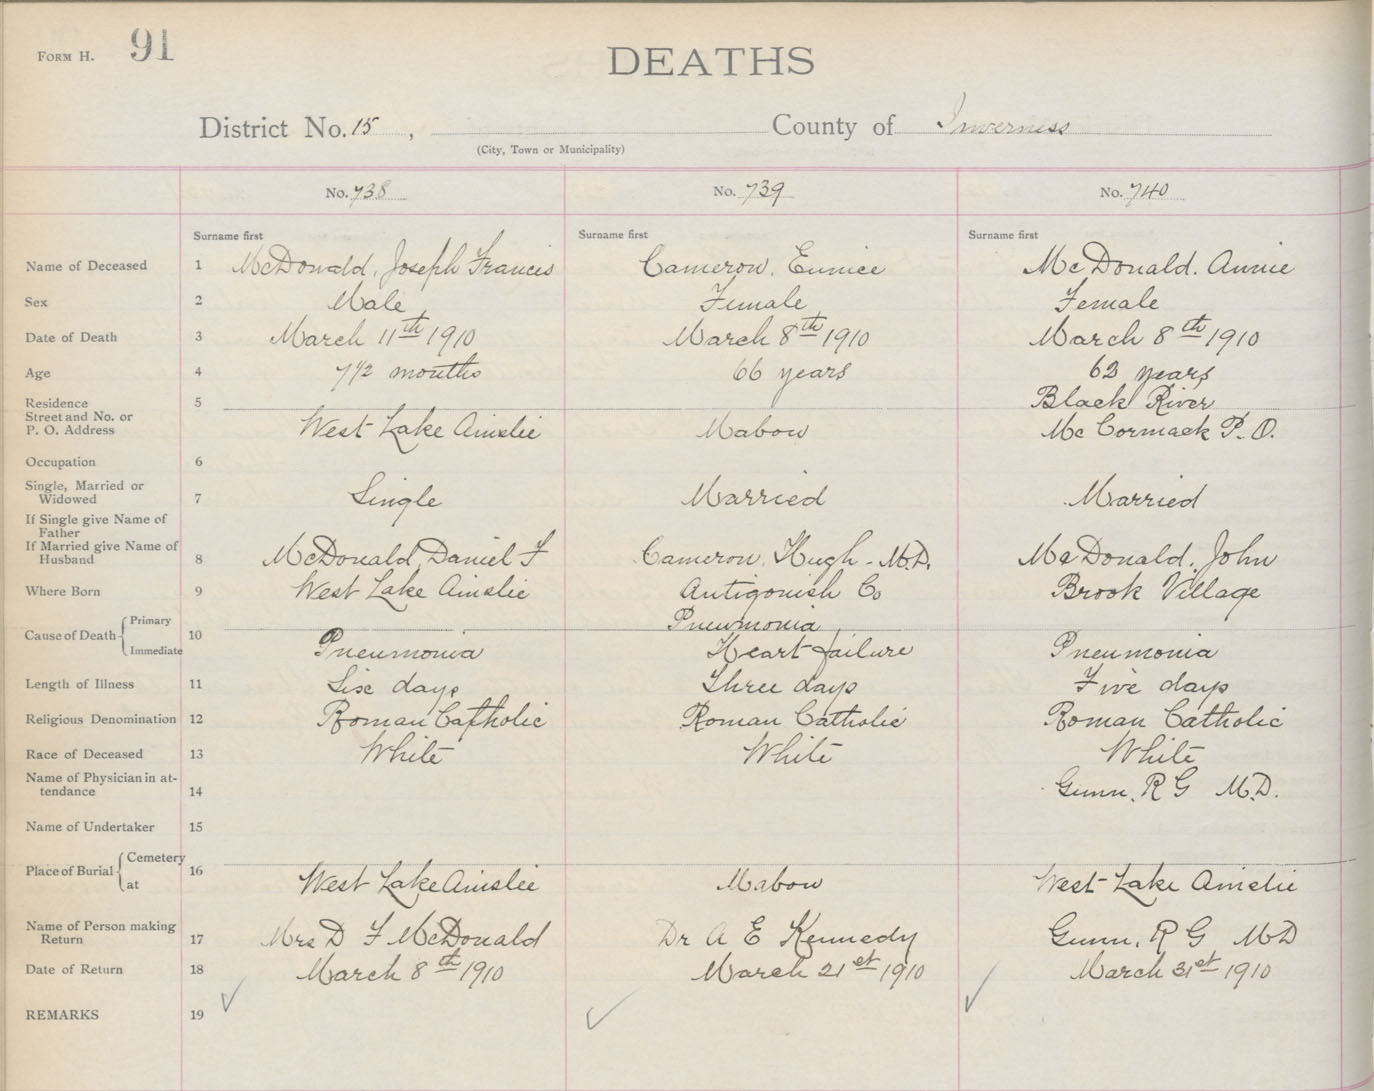 FORM H. 91
DEATHS
District No. 15 , County of Inverness
(City, Town or Municipality)
No. 738 No. 739 No. 740
Surname first Surname first Surname first
Name of Deceased 1 McDonald, Joseph Francis Cameron, Eunice McDonald. Annie
Sex 2 Male Female Female
Date of Death 3 March 11th 1910 March 8th 1910 March 8th 1910
Age 4 7 1/2 months 66 years 62 years
Residence 5 Black River
Street and No. or
P. O. Address West Lake Ainslie Mabou McCormack P. O.
Occupation 6
Single, Married or
Widowed 7 Single Married Married
If Single give Name of
Father
If Married give Name of
Husband 8 McDonald, Daniel F Cameron, Hugh - M.D. McDonald, John
Where Born 9 West Lake Ainslie Antigonish Co Brook Village
Primary Pneumonia
Cause of Death 10
Immediate Pneumonia Heart failure Pneumonia
Length of Illness 11 Six days Three days Five days
Religious Denomination 12 Roman Catholic Roman Catholic Roman Catholic
Race of Deceased 13 White White White
Name of Physician in at-
tendance 14 Gunn, R G M.D.
Name of Undertaker 15
Cemetery
Place of Burial 16
at West Lake Ainslie Mabou West Lake Ainslie
Name of Person making
Return 17 Mrs D F McDonald Dr A E Kennedy Gunn, R G MD
Date of Return 18 March 8th 1910 March 21st 1910 March 31st 1910
REMARKS 19